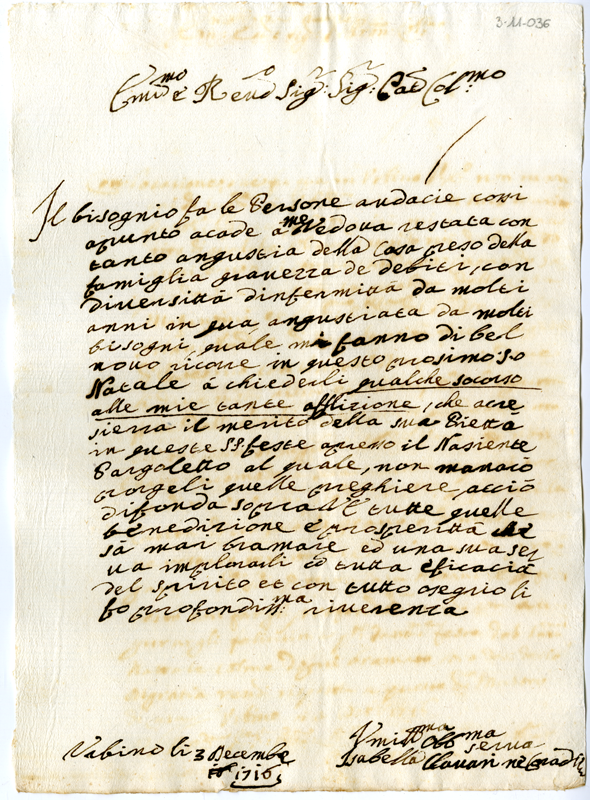 3-11-036
Em.mo e Rev.o Sig.r Sig.r Pad. Col.mo
Il bisognio fa le Persone audacie cossi
apunto acade a me Vedova restata con
tanto angustia della Casa preso della
famiglia gravezza de debiti, con
diversittà d'infermittà da molti
anni in qua angustiata da molti
bisogni quale mi fanno di bel
novo ricore in questo prosimo So
Natale à chiederli qualche socorso
alle mie tante afflicione, che acre
sierra il merito della sua Pietta
in queste SS feste apreso il Nasiente
Pargoletto al quale, non mancio
porgeli quelle preghiere, acciò
difonda sopra V.E. tutte quelle
benedizione e prosperittà che
sà mai bramare ed una sua ser
va implorarli ed tutta eficacia
del spirito et con tutto osequio li
fo profondis.ma riverenza
Vabino li 3 Decembe
1716
Umiss.ma Obb.ma serva
Isabella